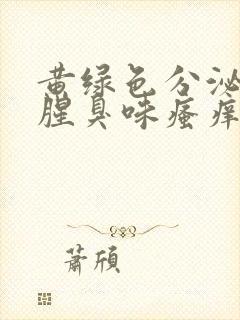 黄绿色分泌
腥臭味瘙痒
萧颀